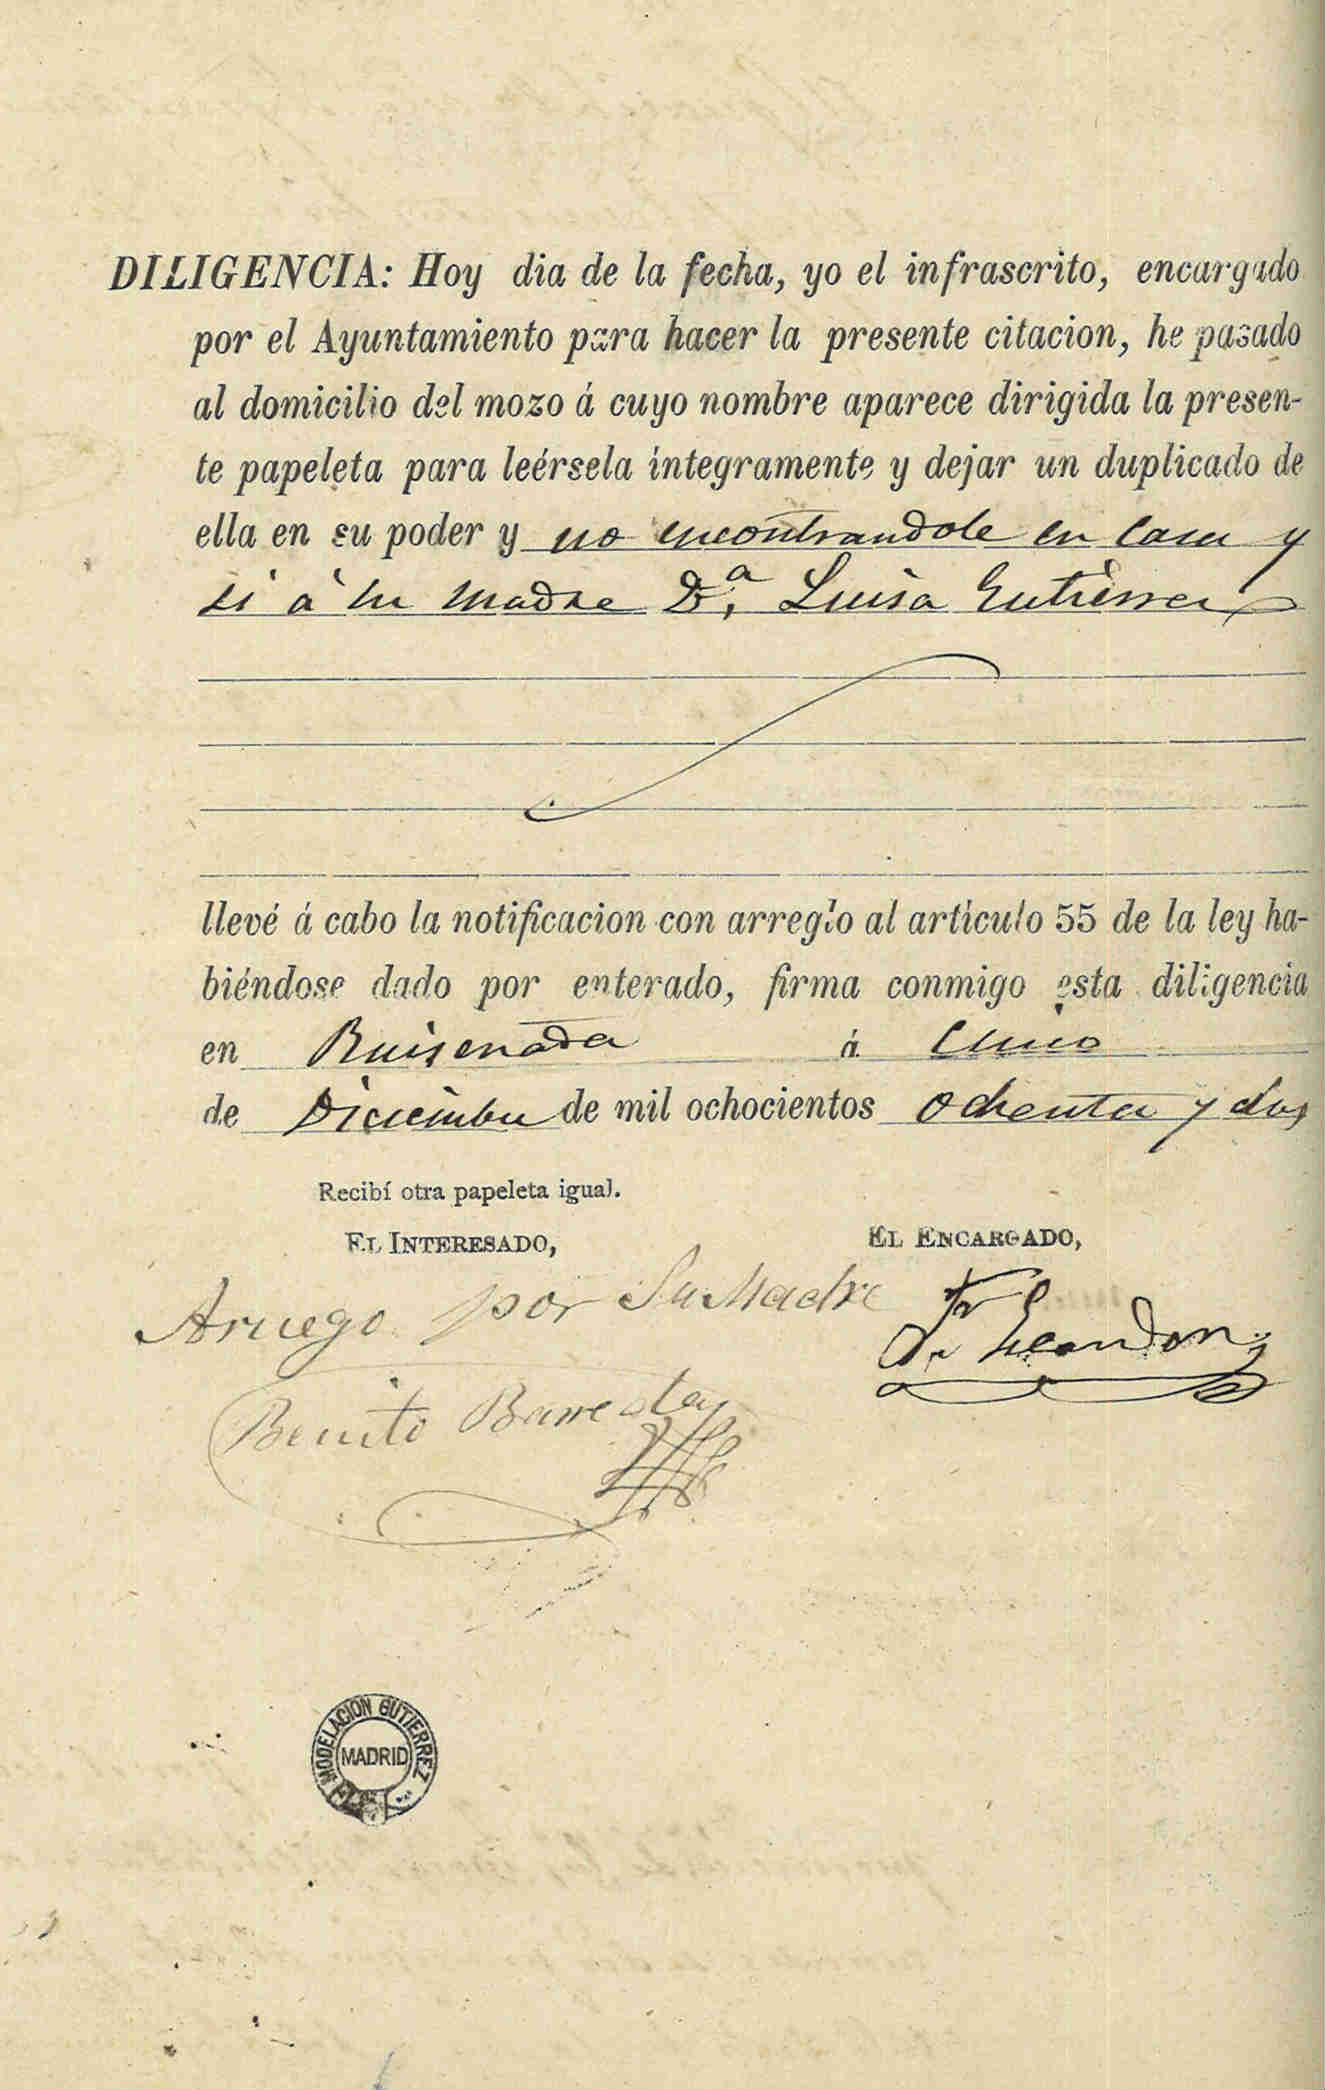 DILIGENCIA: Hoy dia de la fecha, yo el infrascrito, encargado
por el Ayuntamiento para hacer la presente citacion, he pasado
al domicilio del mozo á cuyo nombre aparece dirigida la presen-
te papeleta para leérsela íntegramente y dejar un duplicado de
ella en su poder y no encontrandole en casa y
si á su madre D.ª Luisa Gutierrez
llevé á cabo la notificacion con arreglo al artículo 55 de la ley ha-
biéndose dado por enterado, firma conmigo esta diligencia
en Ruiseñada á Cinco
de Diciembre de mil ochocientos ochenta y dos
Recibí otra papeleta igual.
EL INTERESADO,
EL ENCARGADO,
Aruego por Su Madre
Benito
MODELACION GUTIERREZ
MADRID